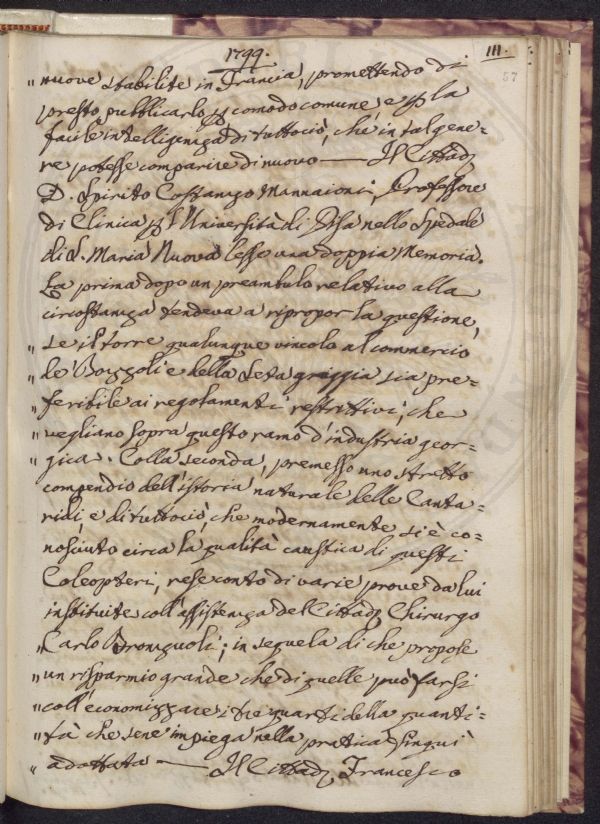 1799.
111.
57
" nuove stabilite in Francia, promettendo di
presto pubblicarlo p comodo comune e p la
facile intelligenza di tuttociò, che in tal gene=
re potesse comparire di nuovo — Il Cittad.
D. Spirito Costanzo Mannaioni, Professore
di Clinica p l'Università di Pisa nello Spedale
di S. Maria Nuova lesse una doppia Memoria.
La prima dopo un preambulo relativo alla
circostanza tendeva a ripropor la questione,
" se il torre qualunque vincolo al commercio
" de' Bozzoli e della Seta greggia sia pre=
" feribile ai regolamenti restrittivi, che
" vegliano sopra questo ramo d'industria geor=
" gica. Colla seconda, premesso uno stretto
compendio dell'istoria naturale delle Canta=
ridi, e di tuttociò, che modernamente si è co=
nosciuto circa la qualità caustica di questi
Coleopteri, rese conto di varie prove da lui
instituite coll'assistenza del Cittad. Chirurgo
" Carlo Bronzuoli; in seguela di che propose
" un risparmio grande che di quelle può farsi
" coll'economizzare i tre quarti della quanti=
" tà che se ne impiega nella pratica finqui
" adottata — Il Cittad. Francesco